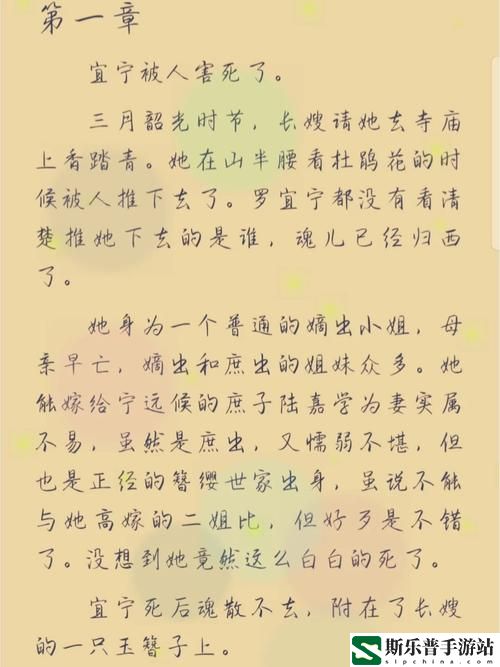 第一章
宜宁被人害死了。
三月韶光时节，长嫂请她去寺庙
上香踏青。她在山半腰看杜鹃花的时
候被人推下去了。罗宜宁都没有看清
楚推她下去的是谁，魂儿已经归西
了。
她身为一个普通的嫡出小姐，母
亲早亡，嫡出和庶出的姐妹众多。她
能嫁给宁远候的庶子陆嘉学为妻实属
不易，虽然是庶出，又懦弱不堪，但
也是正经的簪缨世家出身，虽说不能
与她高嫁的二姐比，但好歹是不错
了。没想到她竟然这么白白的死了。
宜宁死后魂散不去，附在了长嫂
的一只玉簪子上。
斯乐普手游站
slpchina.com